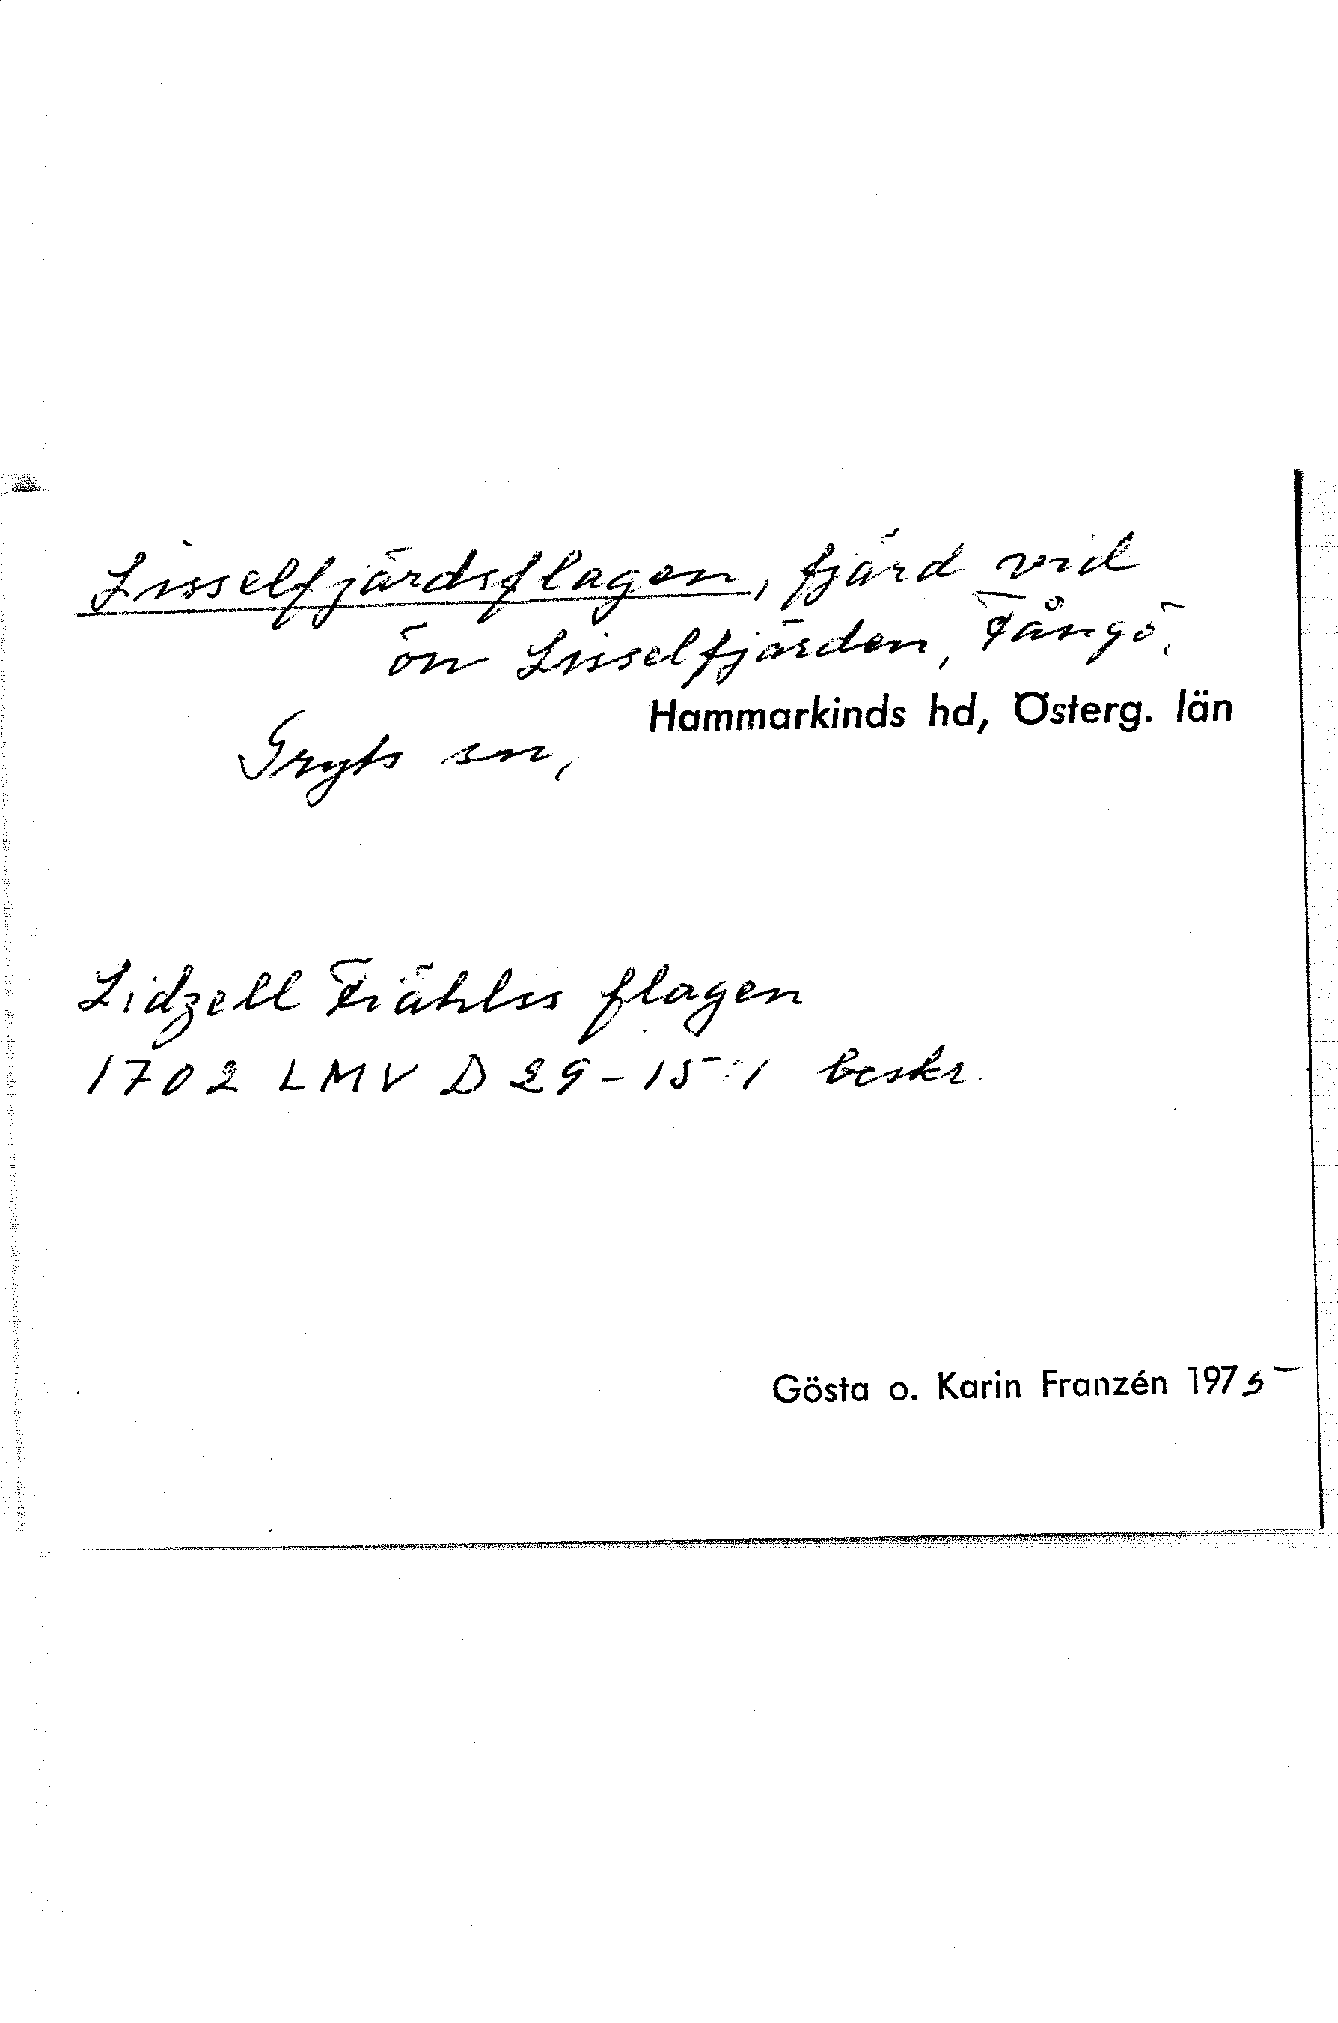 Lisselfjärdsflagen, fjärd vid
ön Lisselfjärden, Fångö,
Hammarkinds hd, Österg. län
Gryts sn,
Lidzell Fiählss flagen
1702 LMV D 29-15:1 beskr.
Gösta o. Karin Franzén 1975